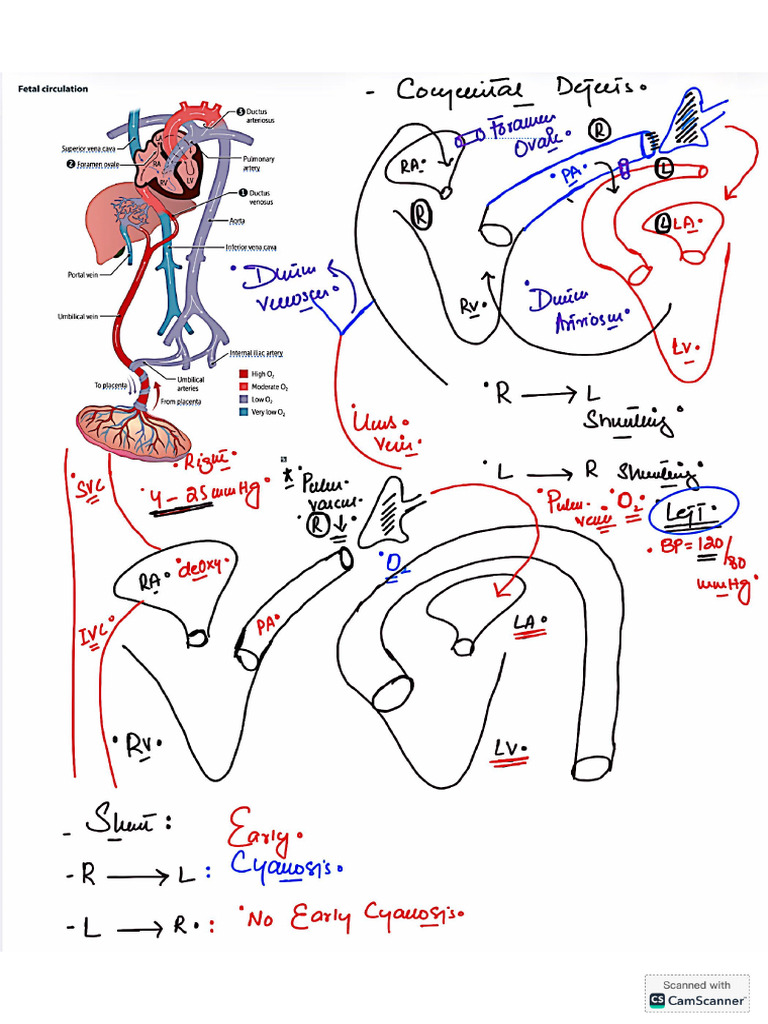 Fetal circulation
- Congenital Defects.
③ Ductus
arteriosus
Superior vena cava
② Foramen ovale
LA
RA
LV
RV
Pulmonary
artery
① Ductus
venosus
Aorta
Inferior vena cava
Portal vein
Umbilical vein
Internal iliac artery
Umbilical
arteries
To placenta
From placenta
High O₂
Moderate O₂
Low O₂
Very low O₂
Foramen
Ovale
R
RA
PA
L
R
L LA
RV
LV
Venosus
R → L
Shunting
L → R Shunting
Vein
Right
4-25 mmHg
SVC
* Pulm.
R ↓
Pulm. O₂
Left
BP = 120/80
mmHg
RA deoxy
O₂
PA
LA
IVC
RV
LV
- Shunt:
Early
- R → L: Cyanosis.
- L → R: No Early Cyanosis.
Scanned with
CS CamScanner